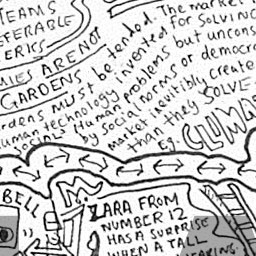 TEAMS
EFERABLE
ERICS
MIES ARE NOT
GARDENS
rdens must be tended. The market
human technology invented for SOLVING
human problems but uncons
by social norms or democra
market inevitibly create
than they SOLVE
Eg. CLIMA
BELL
ZARA FROM
NUMBER 12
HAS A SURPRISE
WHEN A TALL